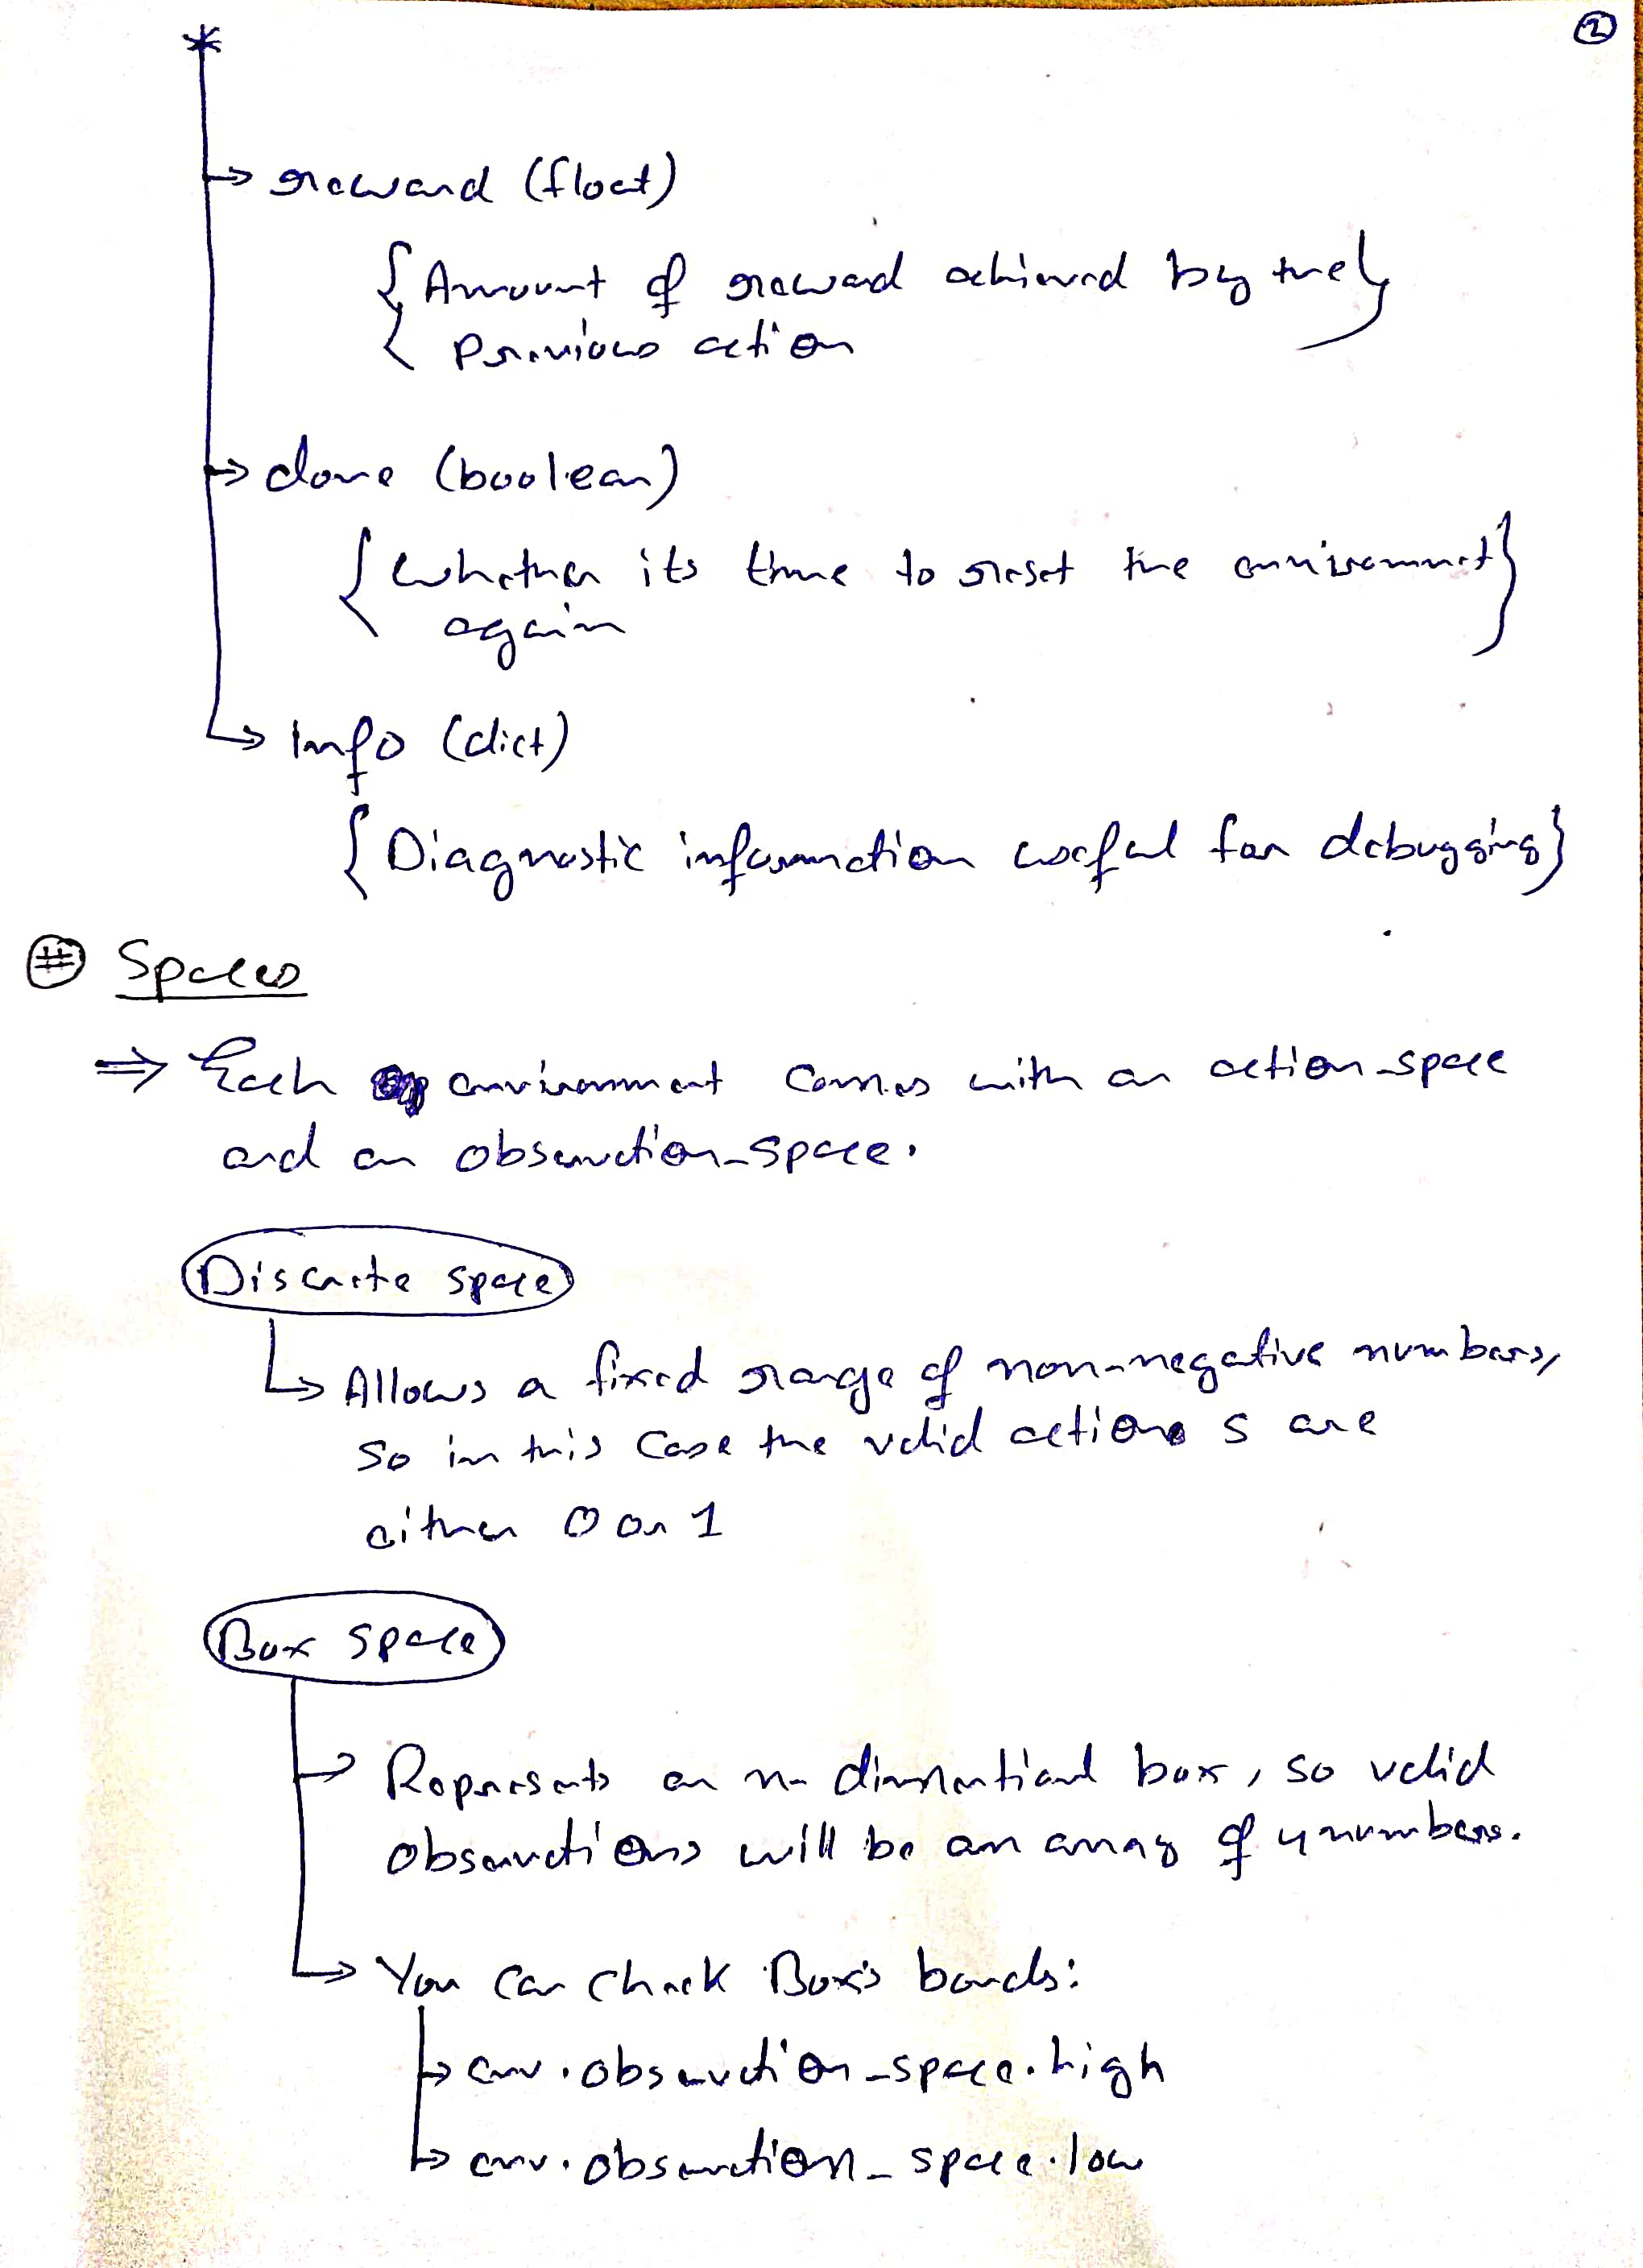 2
*
→ reward (float)
{ Amount of reward achieved by the }
previous action
→ done (boolean)
{ whether its time to reset the environment }
again
→ Info (dict)
{ Diagnostic information useful for debugging }
# Spaces
⇒ Each environment comes with an action_space
and an observation_space.
Discrete space
↳ Allows a fixed range of non-negative numbers,
so in this case the valid actions are
either 0 or 1
Box space
→ Represents an n-dimentional box, so valid
observations will be an array of 4 numbers.
→ You can check Box's bounds:
→ env.observation_space.high
→ env.observation_space.low